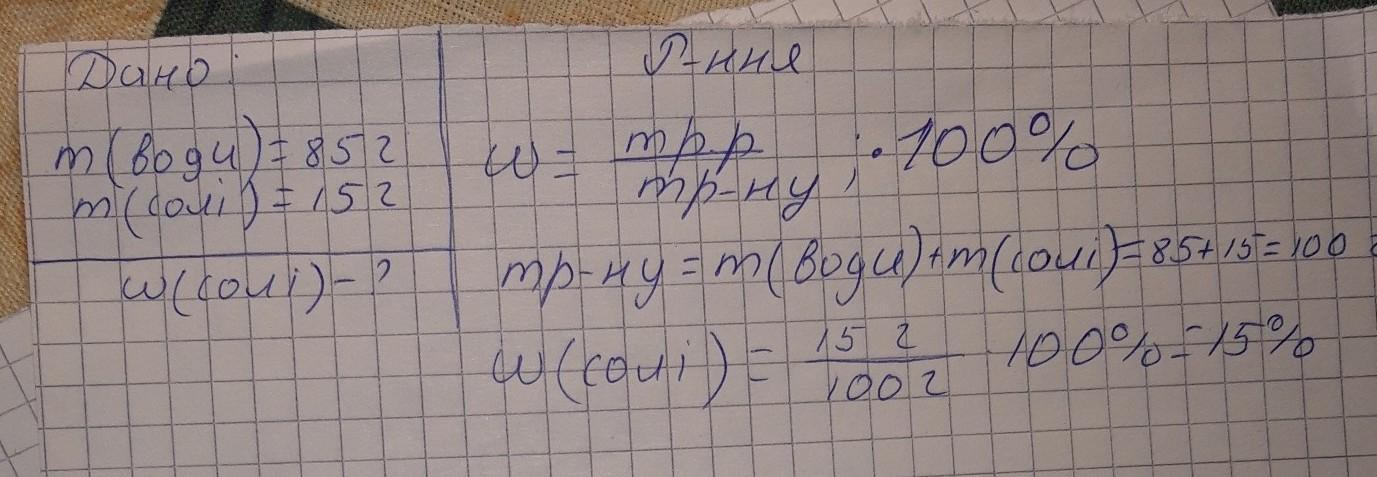 Дано:
m(води) = 85 г
m(солі) = 15 г
w(солі) - ?
Р-ння
w = mр.р / mр-ну ; · 100%
mр-ну = m(води) + m(солі) = 85 + 15 = 100
w(солі) = 15 г / 100 г 100% = 15%